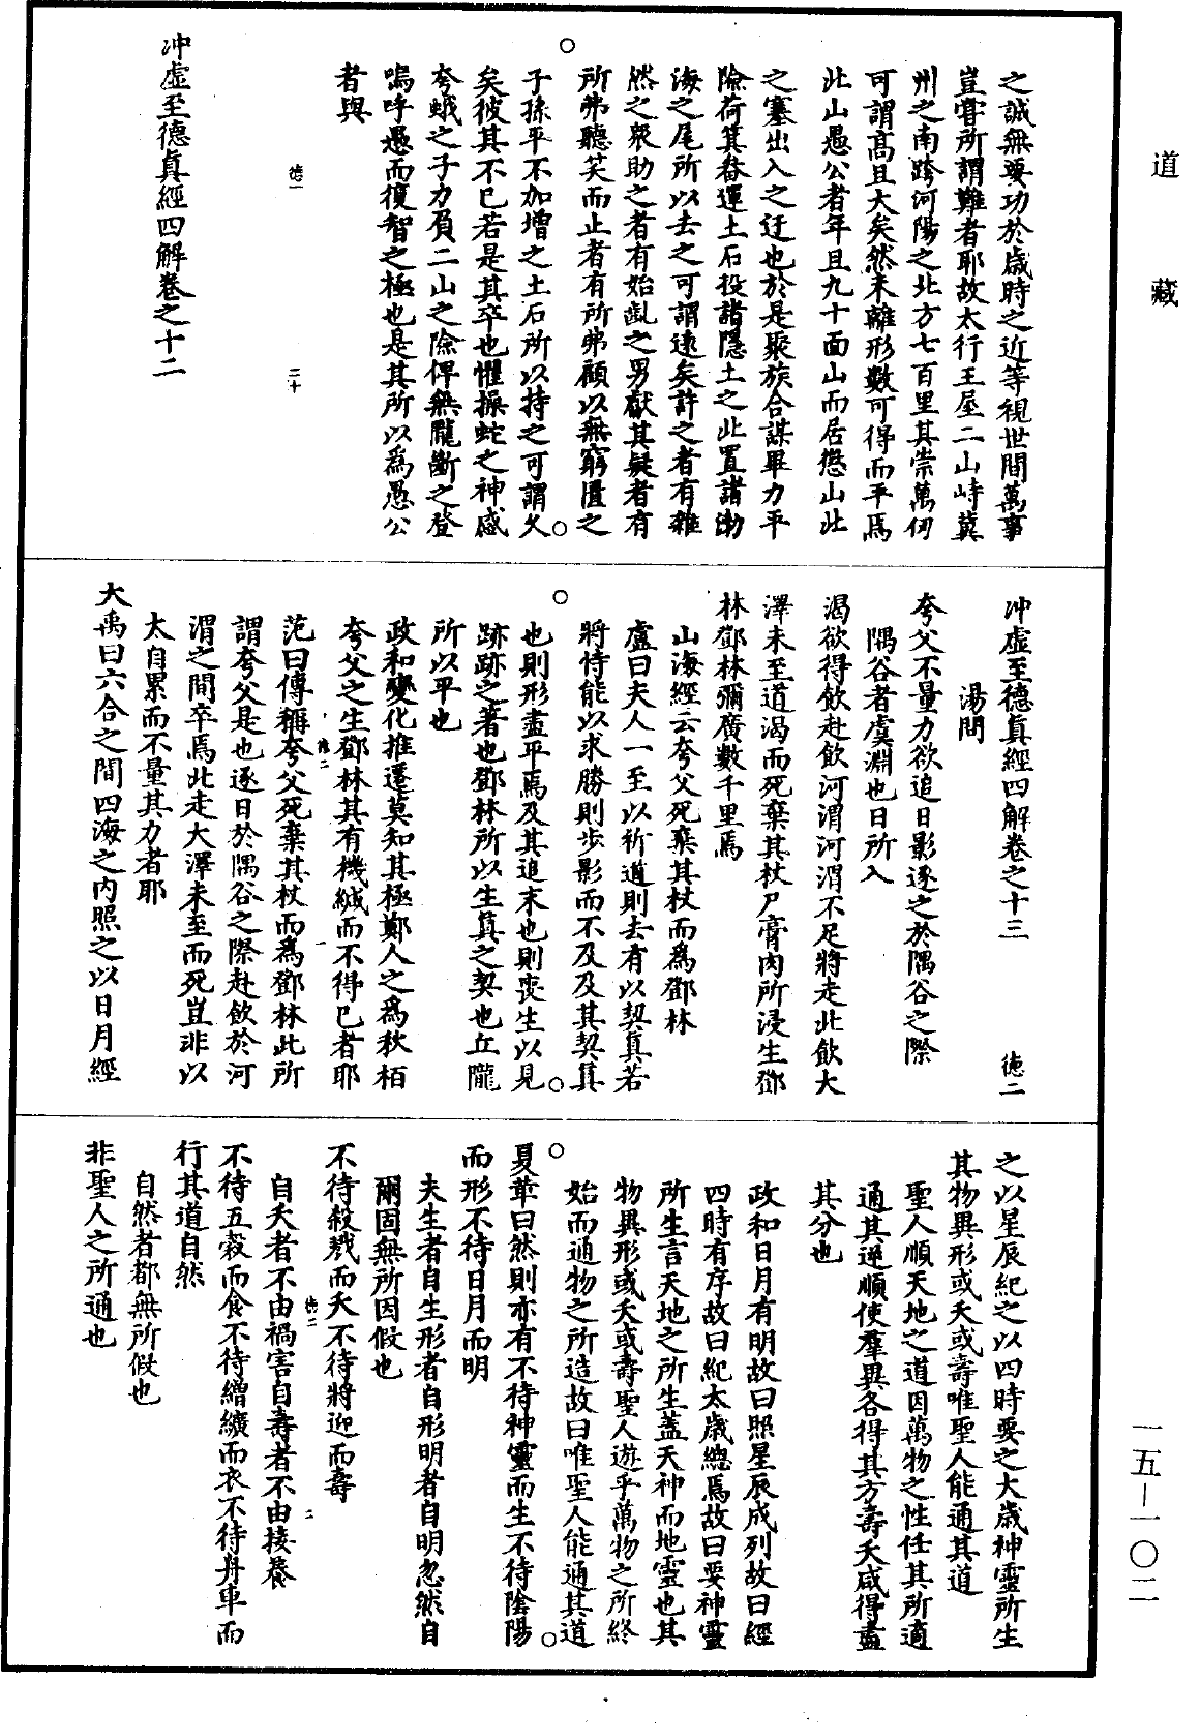 道藏
之誠無要功於歲時之近等視世間萬事
豈嘗所謂難者耶故太行王屋二山峙冀
州之南跨河陽之北方七百里其崇萬仞
可謂高且大矣然未離形數可得而平焉
北山愚公者年且九十面山而居懲山北
之塞出入之迂也於是聚族合謀畢力平
險荷其畚運土石投諸隱土之北置諸渤
海之尾所以去之可謂遠矣許之者有雜
然之衆助之者有始齔之男獻其疑者有
所弗聽笑而止者有所弗顧以無窮匱之
子孫平不加增之土石所以持之可謂久
矣彼其不已若是其卒也懼操蛇之神感
夸蛾之子力負二山之險俾無隴斷之登
嗚呼愚而復智之極也是其所以為愚公
者與
德一
二十
冲虛至德真經四解卷之十二
冲虛至德真經四解卷之十三
德二
湯問
夸父不量力欲追日影逐之於隅谷之際
隅谷者虞淵也日所入
渴欲得飲赴飲河渭河渭不足將走北飲大
澤未至道渴而死棄其杖尸膏肉所浸生鄧
林鄧林彌廣數千里焉
山海經云夸父死棄其杖而為鄧林
盧曰夫人一至以祈道則去有以契真若
將恃能以求勝則步影而不及及其契真
也則形盡平焉及其追末也則喪生以見
跡跡之著也鄧林所以生真之契也丘隴
所以平也
政和變化推遷莫知其極鄭人之為秋栢
夸父之生鄧林其有機緘而不得已者耶
德二
一
范曰傳稱夸父死棄其杖而為鄧林此所
謂夸父是也逐日於隅谷之際赴飲於河
渭之間卒焉北走大澤未至而死豈非以
太自累而不量其力者耶
大禹曰六合之間四海之內照之以日月經
之以星辰紀之以四時要之太歲神靈所生
其物異形或夭或壽唯聖人能通其道
聖人順天地之道因萬物之性任其所適
通其逆順使羣異各得其方壽夭咸得盡
其分也
政和日月有明故曰照星辰成列故曰經
四時有序故曰紀太歲總焉故曰要神靈
所生言天地之所生蓋天神而地靈也其
物異形或夭或壽聖人遊乎萬物之所終
始而通物之所造故曰唯聖人能通其道
夏革曰然則亦有不待神靈而生不待陰陽
而形不待日月而明
夫生者自生形者自形明者自明忽然自
爾固無所因假也
不待殺戮而夭不待將迎而壽
德二
二
自夭者不由禍害自壽者不由接養
不待五穀而食不待繒纊而衣不待舟車而
行其道自然
自然者都無所假也
非聖人之所通也
一五—一〇二